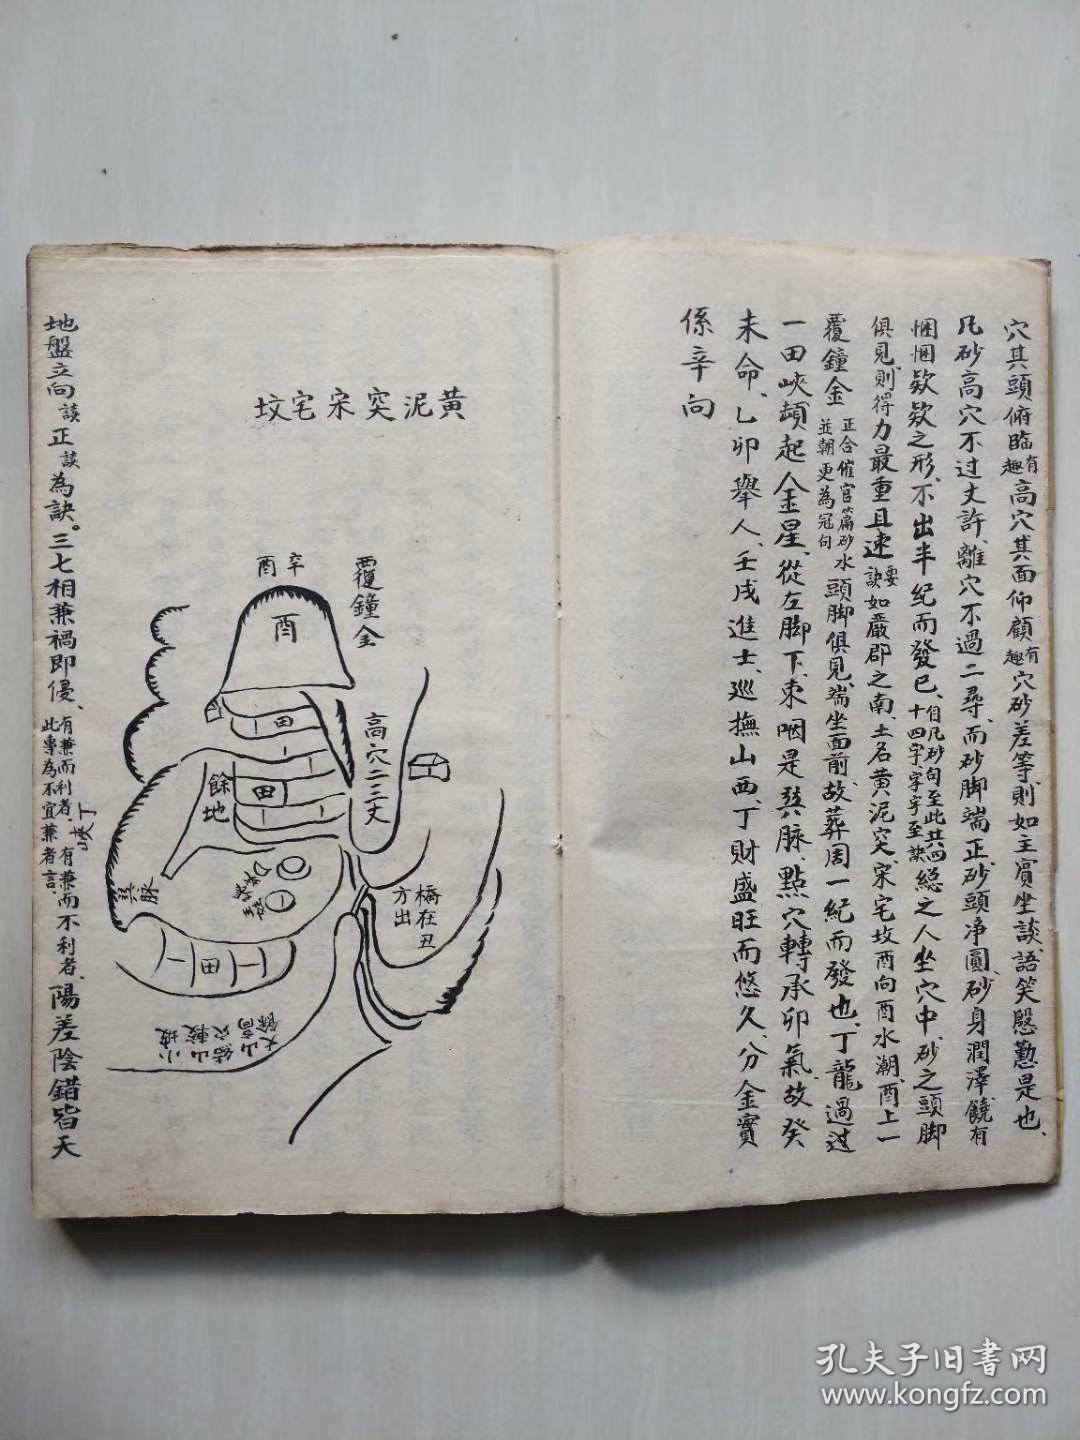 穴其頭俯臨有趣高穴其面仰顧有趣穴砂差等則如主賓坐談語笑慇懃是也、
凡砂高穴不过丈許、離穴不過二尋、而砂脚端正、砂頭净圓、砂身潤澤饒有
悃悃欵欵之形、不出半紀而發已、自凡砂句至此共四十四字、字字至訣總之人坐穴中、砂之頭脚
俱見、則得力最重且速要訣如嚴郡之南、土名黄泥突、宋宅坟酉向酉水潮、酉上一
覆鐘金正合催官篇砂水並朝更為冠句頭脚俱見、端坐面前、故葬周一紀而發也、丁龍過过
一田峽、頓起金星、從左脚下、束咽是巽脉、點穴轉承卯氣、故癸
未命、乙卯舉人、壬戌進士、巡撫山西、丁財盛旺而悠久、分金實
係辛向
黄泥突宋宅坟
覆鐘金
辛
酉
酉
田
高穴二三丈
田
餘地
巽脉
丁峡
橋在丑方出
田
大山高
小坡
地盤立向談正談為訣。三七相兼禍即侵、有兼而利者、有兼而不利者、此專為不宜兼者言、陽差陰錯皆天
孔夫子旧書网
www.kongfz.com